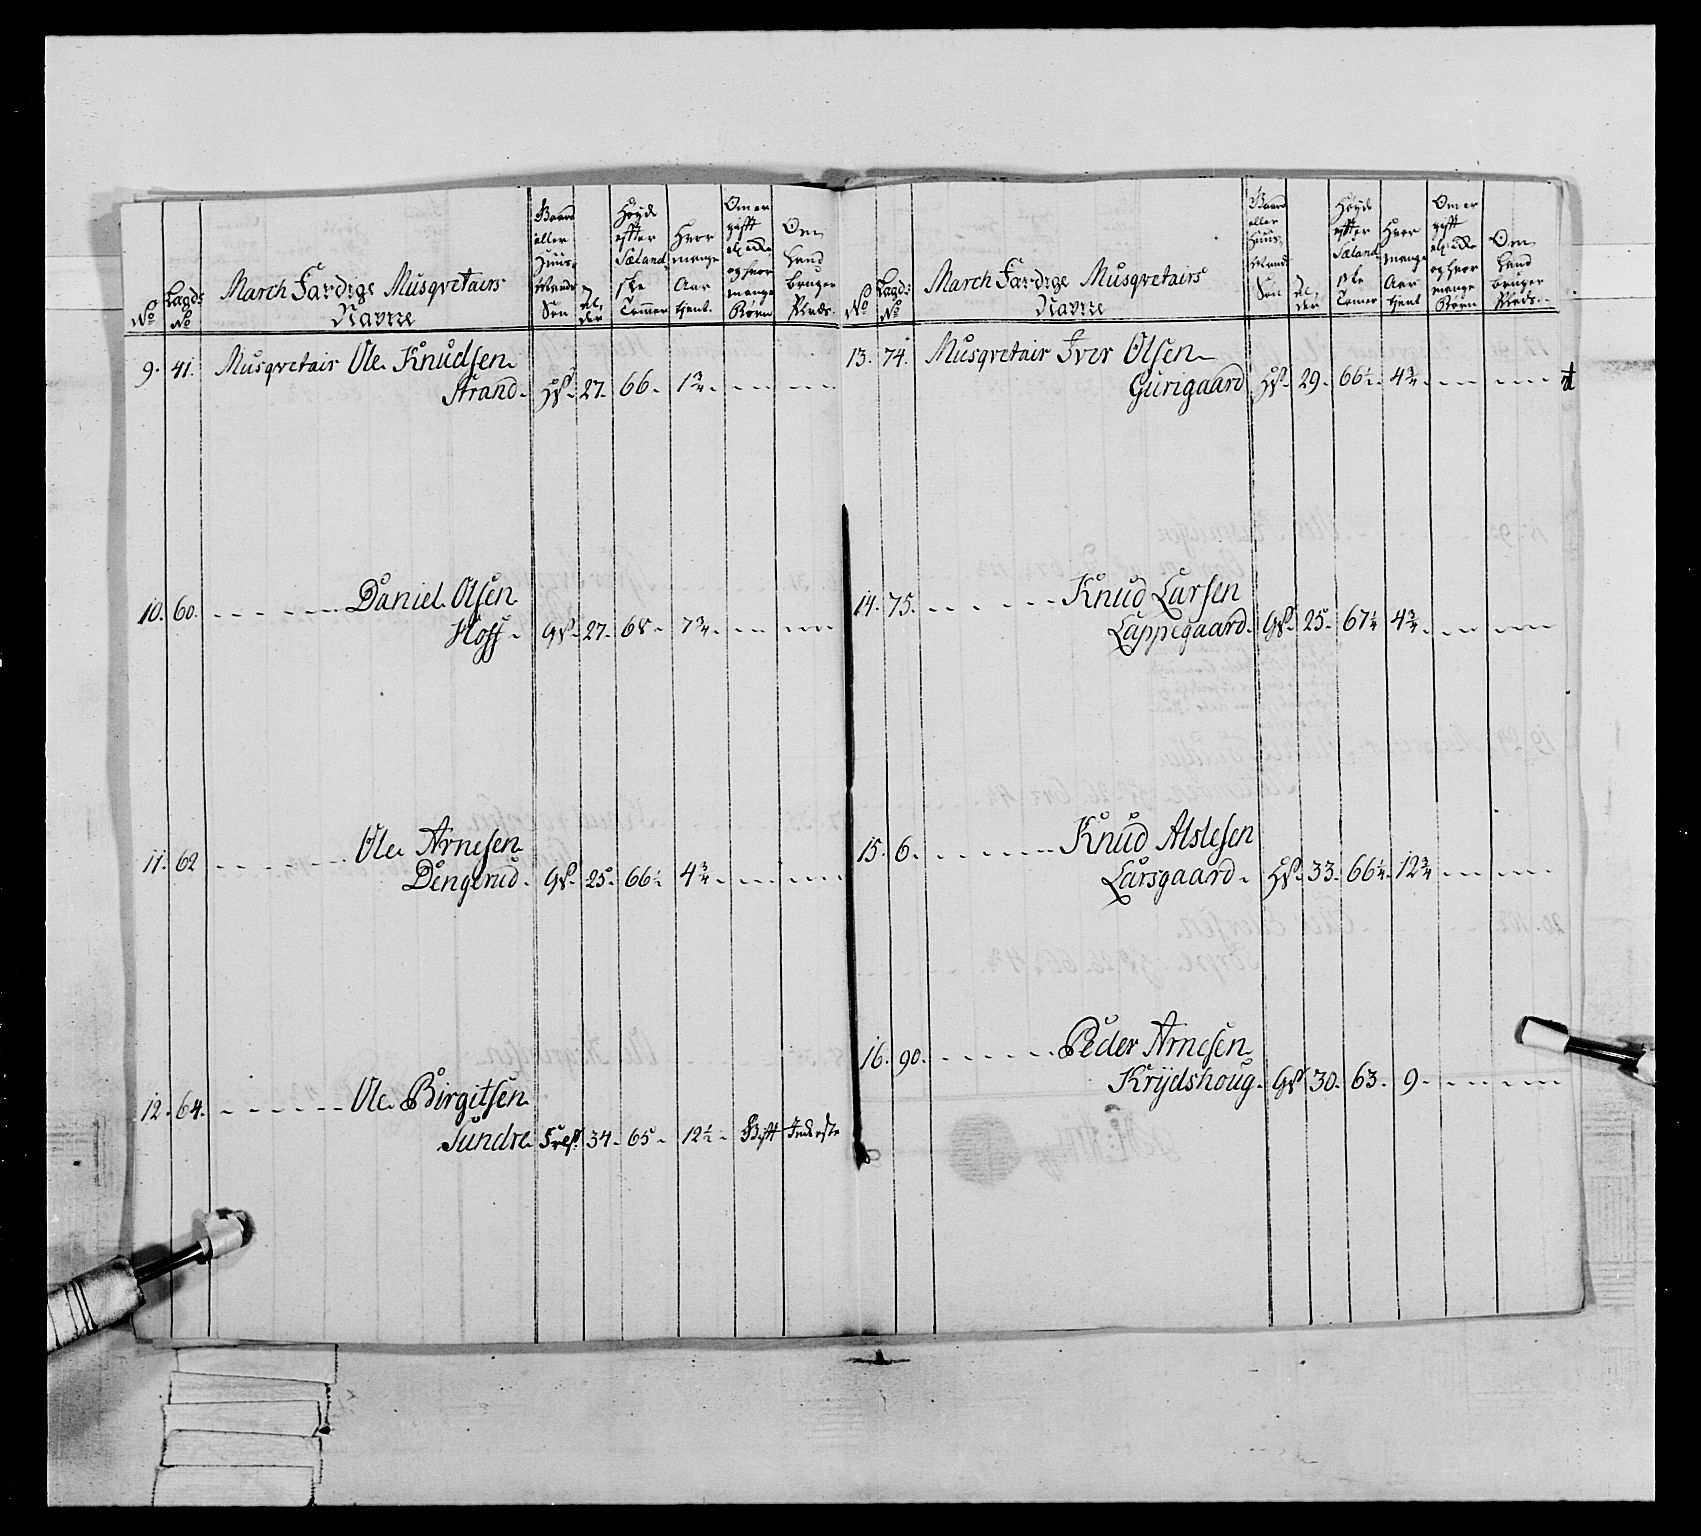 No
Lagds No
March Færdige Musqvetairs
Navne
Gaard eller Huus Mands Søn
Al, der
Høyde efter Sæland, ske Tommer
Hvor mange Aar tjent.
Om er gift el: ikke og hvor mange Børn
Om Land bruger Plads.
9. 41. Musqvetair Ole Knudsen
Strand. HS. 27. 66. 1 3/4. - - - - - -
10. 60. - - - - - - Daniel Olsen
Hoff. GS. 27. 68. 7 3/4. - - - - - -
11. 62 - - - - - - Ole Arnesen
Dengerud. GS. 25. 66 1/2 4 3/4. - - - - - -
12. 64. - - - - - - Ole Birgitsen
Sundre 34. 65. 12 1/2. Gift Inderste
No
Lagds No
March Færdige Musqvetairs
Navne
Gaard eller Huus Mands Søn
Al, der
Høyde efter Sæland, ske Tomer
Hvor mange Aar tjent
Om er gift el: ikke og hvor mange Børn
Om Land bruger Plads.
13. 74. Musqvetair Iver Olsen
Gurigaard HS. 29. 66 1/2. 4 3/4. - - - - - -
14. 75. - - - - - - Knud Larsen
Lappegaard. GS. 25. 67 1/4 4 3/4. - - - - - -
15. 6. - - - - - - Knud Alslesen
Larsgaard. HS. 33. 66 1/4. 12 3/4 - - - - - -
16. 90. - - - - - - Peder Arnesen
Krijdshoug. GS 30. 63. 9. - - - - - -